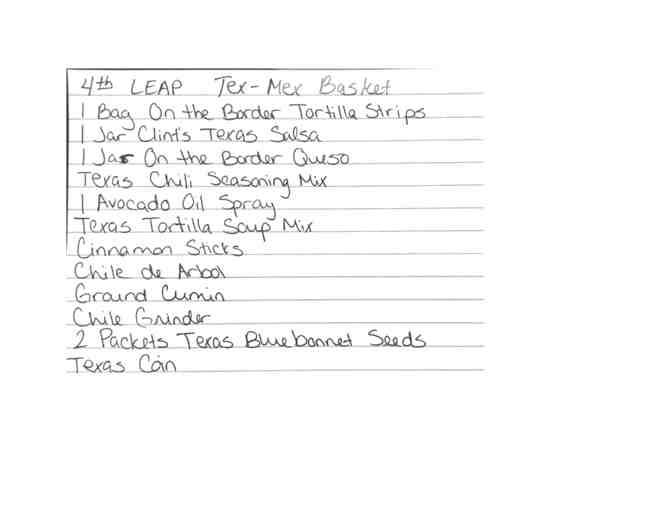 4th LEAP Tex-Mex Basket
1 Bag On the Border Tortilla Strips
1 Jar Clint's Texas Salsa
1 Jar On the Border Queso
Texas Chili Seasoning Mix
1 Avocado Oil Spray
Texas Tortilla Soup Mix
Cinnamon Sticks
Chile de Arbol
Ground Cumin
Chile Grinder
2 Packets Texas Bluebonnet Seeds
Texas Coin